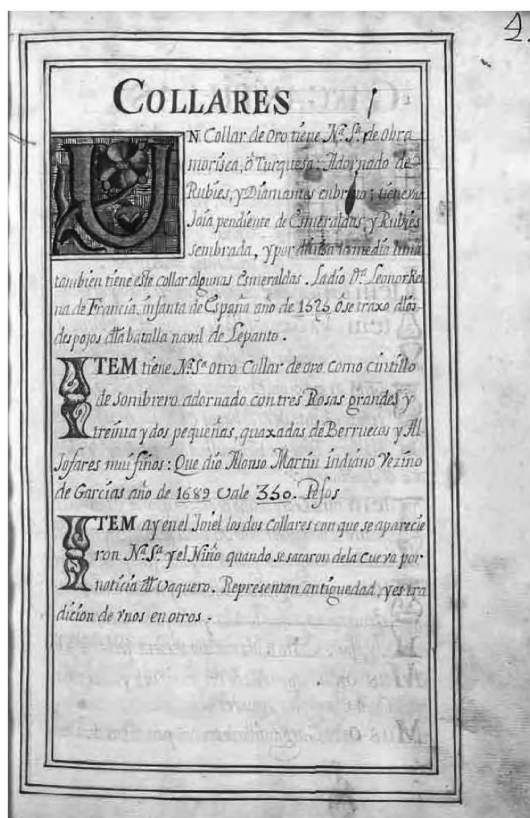 4.
COLLARES
UN Collar de oro tiene Nª. Sª. de obra
morisca, ô Turquesa: Adornado de
Rubíes, y Díamantes en bruto; tiene una
Joía pendiente de Esmeraldas, y Rubíes
sembrada, y por debaxo la medía luna
tambien tiene este collar algunas Esmeraldas. La dío Dª. Leonor Rei
na de Francía, ínfanta de España año de 1525 ô se traxo dlos
despojos dla batalla naval de Lepanto.
ITEM tíene Nª. Sª. otro Collar de oro como cíntíllo
de sombrero adornado con tres Rosas grandes y
treínta y dos pequeñas, quaxadas de Berruecos y Al
Jofares muí fínos: Que dío Alonso Martín índíano Vezíno
de Garcías año de 1689 vale 350. Pesos
ITEM ay en el Joíel los dos Collares con que se aparecíe
ron Nª. Sª. y el Níño quando se sacaron de la cueva por
notícía dl Vaquero. Representan antíguedad, y es tra
dícíon de vnos en otros.